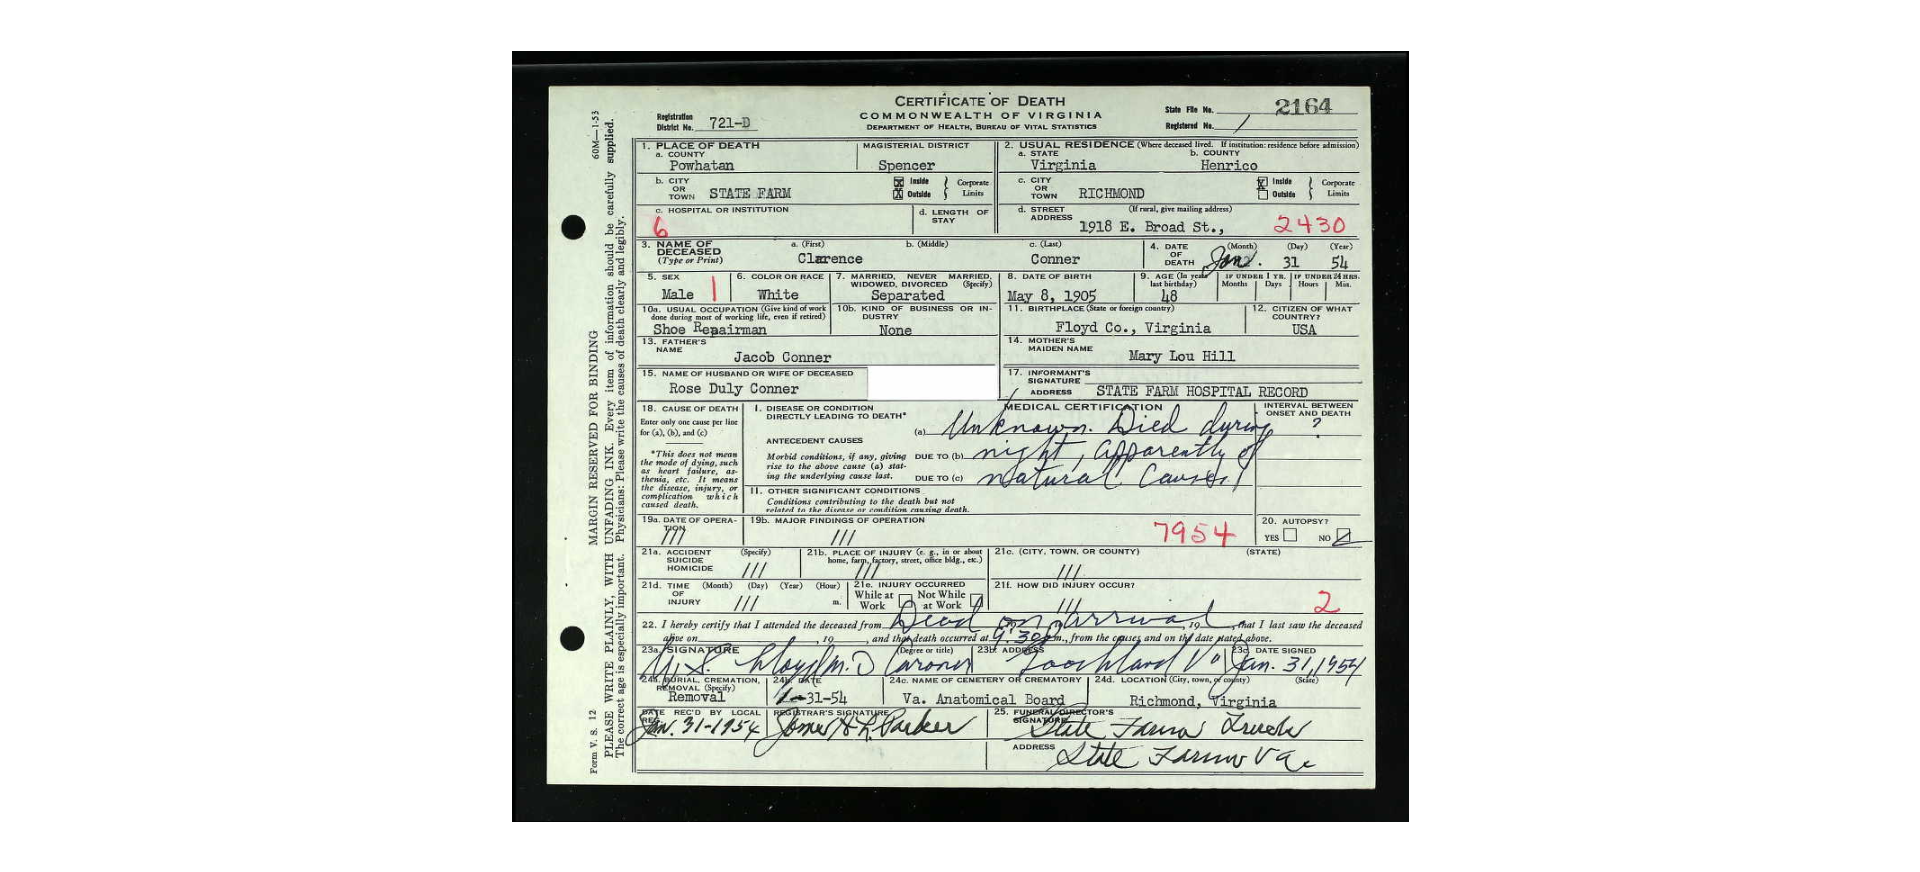 CERTIFICATE OF DEATH
COMMONWEALTH OF VIRGINIA
DEPARTMENT OF HEALTH, BUREAU OF VITAL STATISTICS
Registration District No. 721-D
State File No. 2164
Registered No. 1
1. PLACE OF DEATH
a. COUNTY
Powhatan
MAGISTERIAL DISTRICT
Spencer
2. USUAL RESIDENCE (Where deceased lived. If institution: residence before admission)
a. STATE
Virginia
b. COUNTY
Henrico
b. CITY OR TOWN STATE FARM
Inside
Outside
Corporate Limits
c. CITY OR TOWN RICHMOND
Inside
Outside
Corporate Limits
c. HOSPITAL OR INSTITUTION
6
d. LENGTH OF STAY
d. STREET ADDRESS (If rural, give mailing address)
1918 E. Broad St., 2430
3. NAME OF DECEASED (Type or Print)
a. (First)
Clarence
b. (Middle)
c. (Last)
Conner
4. DATE OF DEATH
(Month) (Day) (Year)
Jan. 31 54
5. SEX
Male 1
6. COLOR OR RACE
White
7. MARRIED, NEVER MARRIED, WIDOWED, DIVORCED (Specify)
Separated
8. DATE OF BIRTH
May 8, 1905
9. AGE (In years last birthday)
48
IF UNDER 1 YR.
Months Days
IF UNDER 24 HRS.
Hours Min.
10a. USUAL OCCUPATION (Give kind of work done during most of working life, even if retired)
Shoe Repairman
10b. KIND OF BUSINESS OR INDUSTRY
None
11. BIRTHPLACE (State or foreign country)
Floyd Co., Virginia
12. CITIZEN OF WHAT COUNTRY?
USA
13. FATHER'S NAME
Jacob Conner
14. MOTHER'S MAIDEN NAME
Mary Lou Hill
15. NAME OF HUSBAND OR WIFE OF DECEASED
Rose Duly Conner
17. INFORMANT'S SIGNATURE
ADDRESS STATE FARM HOSPITAL RECORD
18. CAUSE OF DEATH
Enter only one cause per line for (a), (b), and (c)
*This does not mean the mode of dying, such as heart failure, asthenia, etc. It means the disease, injury, or complication which caused death.
MEDICAL CERTIFICATION
INTERVAL BETWEEN ONSET AND DEATH
?
I. DISEASE OR CONDITION DIRECTLY LEADING TO DEATH*
(a) Unknown. Died during
ANTECEDENT CAUSES
Morbid conditions, if any, giving rise to the above cause (a) stating the underlying cause last.
DUE TO (b) night, apparently of
DUE TO (c) natural causes
II. OTHER SIGNIFICANT CONDITIONS
Conditions contributing to the death but not related to the disease or condition causing death.
19a. DATE OF OPERATION
///
19b. MAJOR FINDINGS OF OPERATION
///
7954
20. AUTOPSY?
YES NO
21a. ACCIDENT SUICIDE HOMICIDE (Specify)
///
21b. PLACE OF INJURY (e. g., in or about home, farm, factory, street, office bldg., etc.)
///
21c. (CITY, TOWN, OR COUNTY) (STATE)
///
21d. TIME OF INJURY (Month) (Day) (Year) (Hour) m.
///
21e. INJURY OCCURRED
While at Work Not While at Work
21f. HOW DID INJURY OCCUR?
///
2
22. I hereby certify that I attended the deceased from Dead on arrival, 19, that I last saw the deceased
alive on , 19 , and that death occurred at 9:30 p m., from the causes and on the date stated above.
23a. SIGNATURE (Degree or title)
Lloyd M.D Coroner
23b. ADDRESS
Goochland Va
23c. DATE SIGNED
Jan. 31, 1954
24a. BURIAL, CREMATION, REMOVAL (Specify)
Removal
24b. DATE
1-31-54
24c. NAME OF CEMETERY OR CREMATORY
Va. Anatomical Board
24d. LOCATION (City, town, or county) (State)
Richmond, Virginia
DATE REC'D BY LOCAL REG.
Jan. 31-1954
REGISTRAR'S SIGNATURE
Parker
25. FUNERAL DIRECTOR'S SIGNATURE
State Farm Truck
ADDRESS
State Farm Va.
Form V. S. 12
60M—1-53
MARGIN RESERVED FOR BINDING
PLEASE WRITE PLAINLY, WITH UNFADING INK. Every item of information should be carefully supplied.
The correct age is especially important. Physicians: Please write the causes of death clearly and legibly.